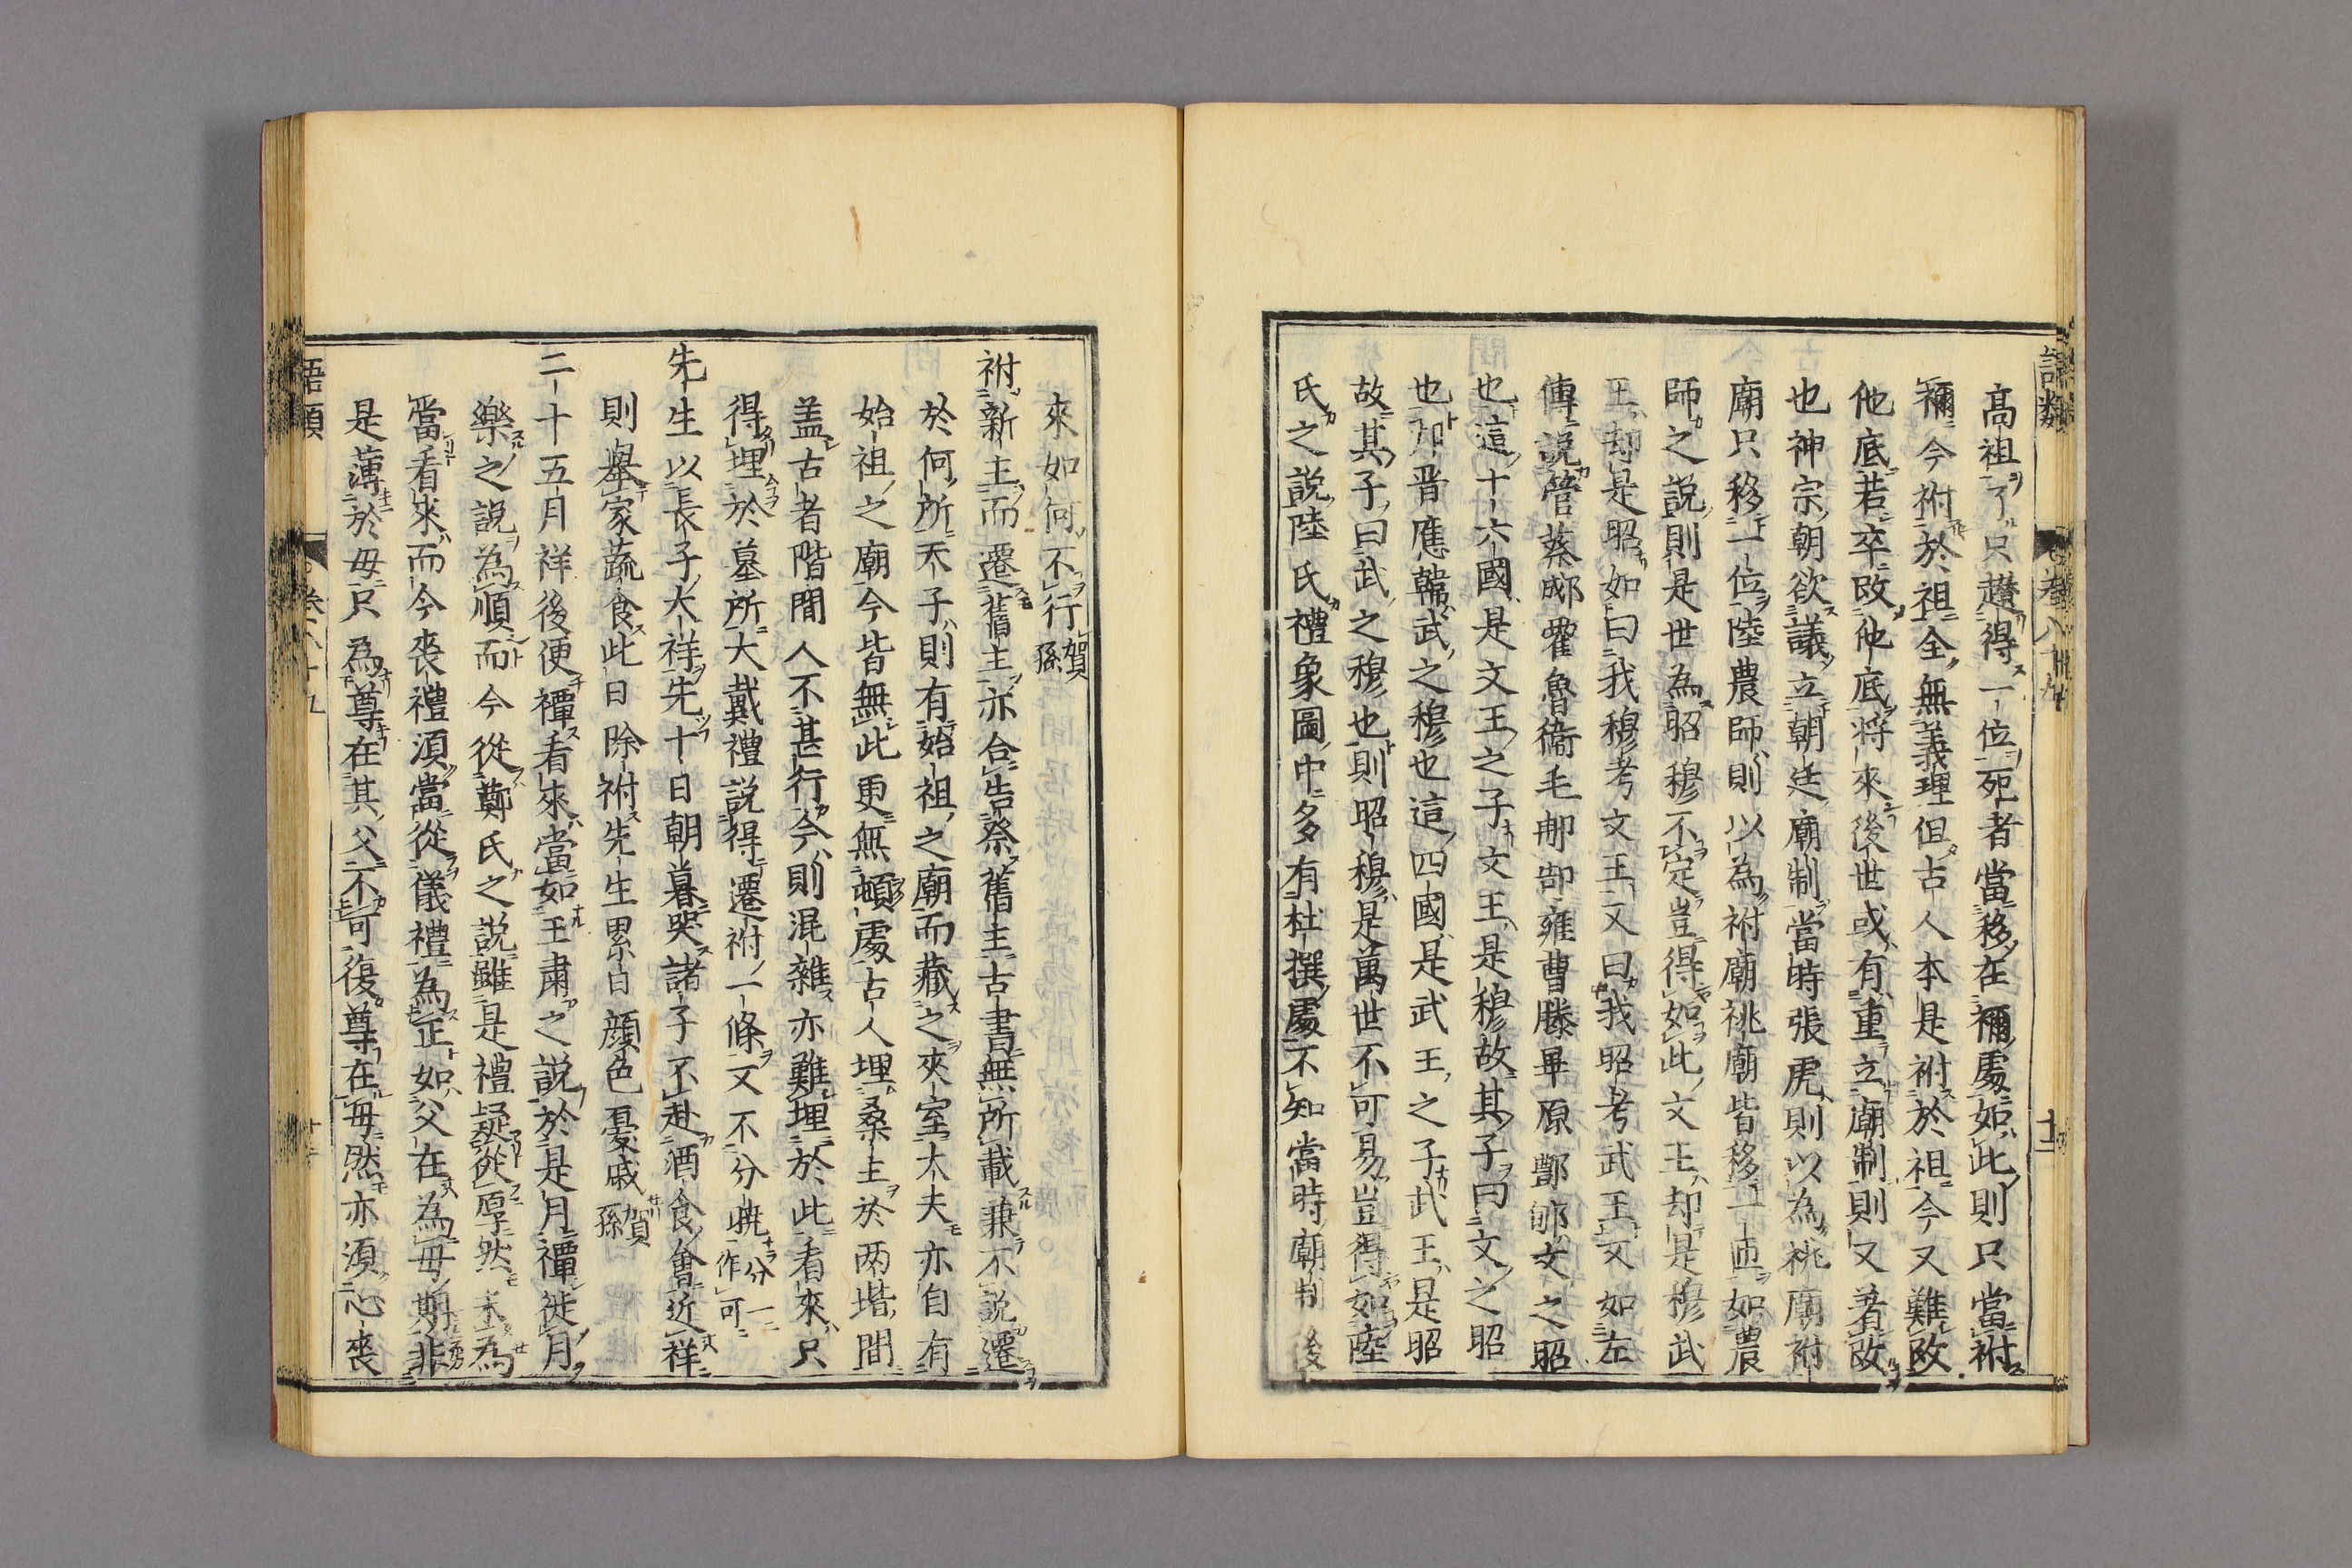 語類
卷八十九
十二
高祖了只趲得一位死者當移在禰處如此則只當祔
禰今祔於祖全無義理但古人本是祔於祖今又難改
他底若卒改他底將來後世或有重立廟制則又著改
也神宗朝欲議立朝廷廟制當時張虎則以為祧廟祔
廟只移一位陸農師則以為祔廟祧廟皆移一匝如農
師之說則是世為昭穆不定豈得如此文王却是穆武
王却是昭如曰我穆考文王又曰我昭考武王又如左
傳說管蔡郕霍魯衞毛聃郜雍曹滕畢原酆郇文之昭
也這十六國是文王之子文王是穆故其子曰文之昭
也邘晋應韓武之穆也這四國是武王之子武王是昭
故其子曰武之穆也則昭穆是萬世不可易豈得如陸
氏之說陸氏禮象圖中多有杜撰處不知當時廟制後
來如何不行賀孫
祔新主而遷舊主亦合告祭舊主古書無所載兼不說遷
於何所天子則有始祖之廟而藏之夾室大夫亦自有
始祖之廟今皆無此更無頓處古人埋桑主於兩堦間
盖古者階間人不甚行今則混雜亦難埋於此看來只
得埋於墓所大戴禮說得遷祔一條又不分曉分一作可
先生以長子大祥先十日朝暮哭諸子不赴酒食會近祥
則舉家蔬食此日除祔先生累日顔色憂戚賀孫
二十五月祥後便禫看來當如王肅之說於是月禫徙月
樂之說為順而今從鄭氏之說雖是禮疑從厚然未為
當看來而今喪禮須當從儀禮為正如父在為母期非
是薄於母只為尊在其父不可復尊在母然亦須心喪
語類
卷八十九